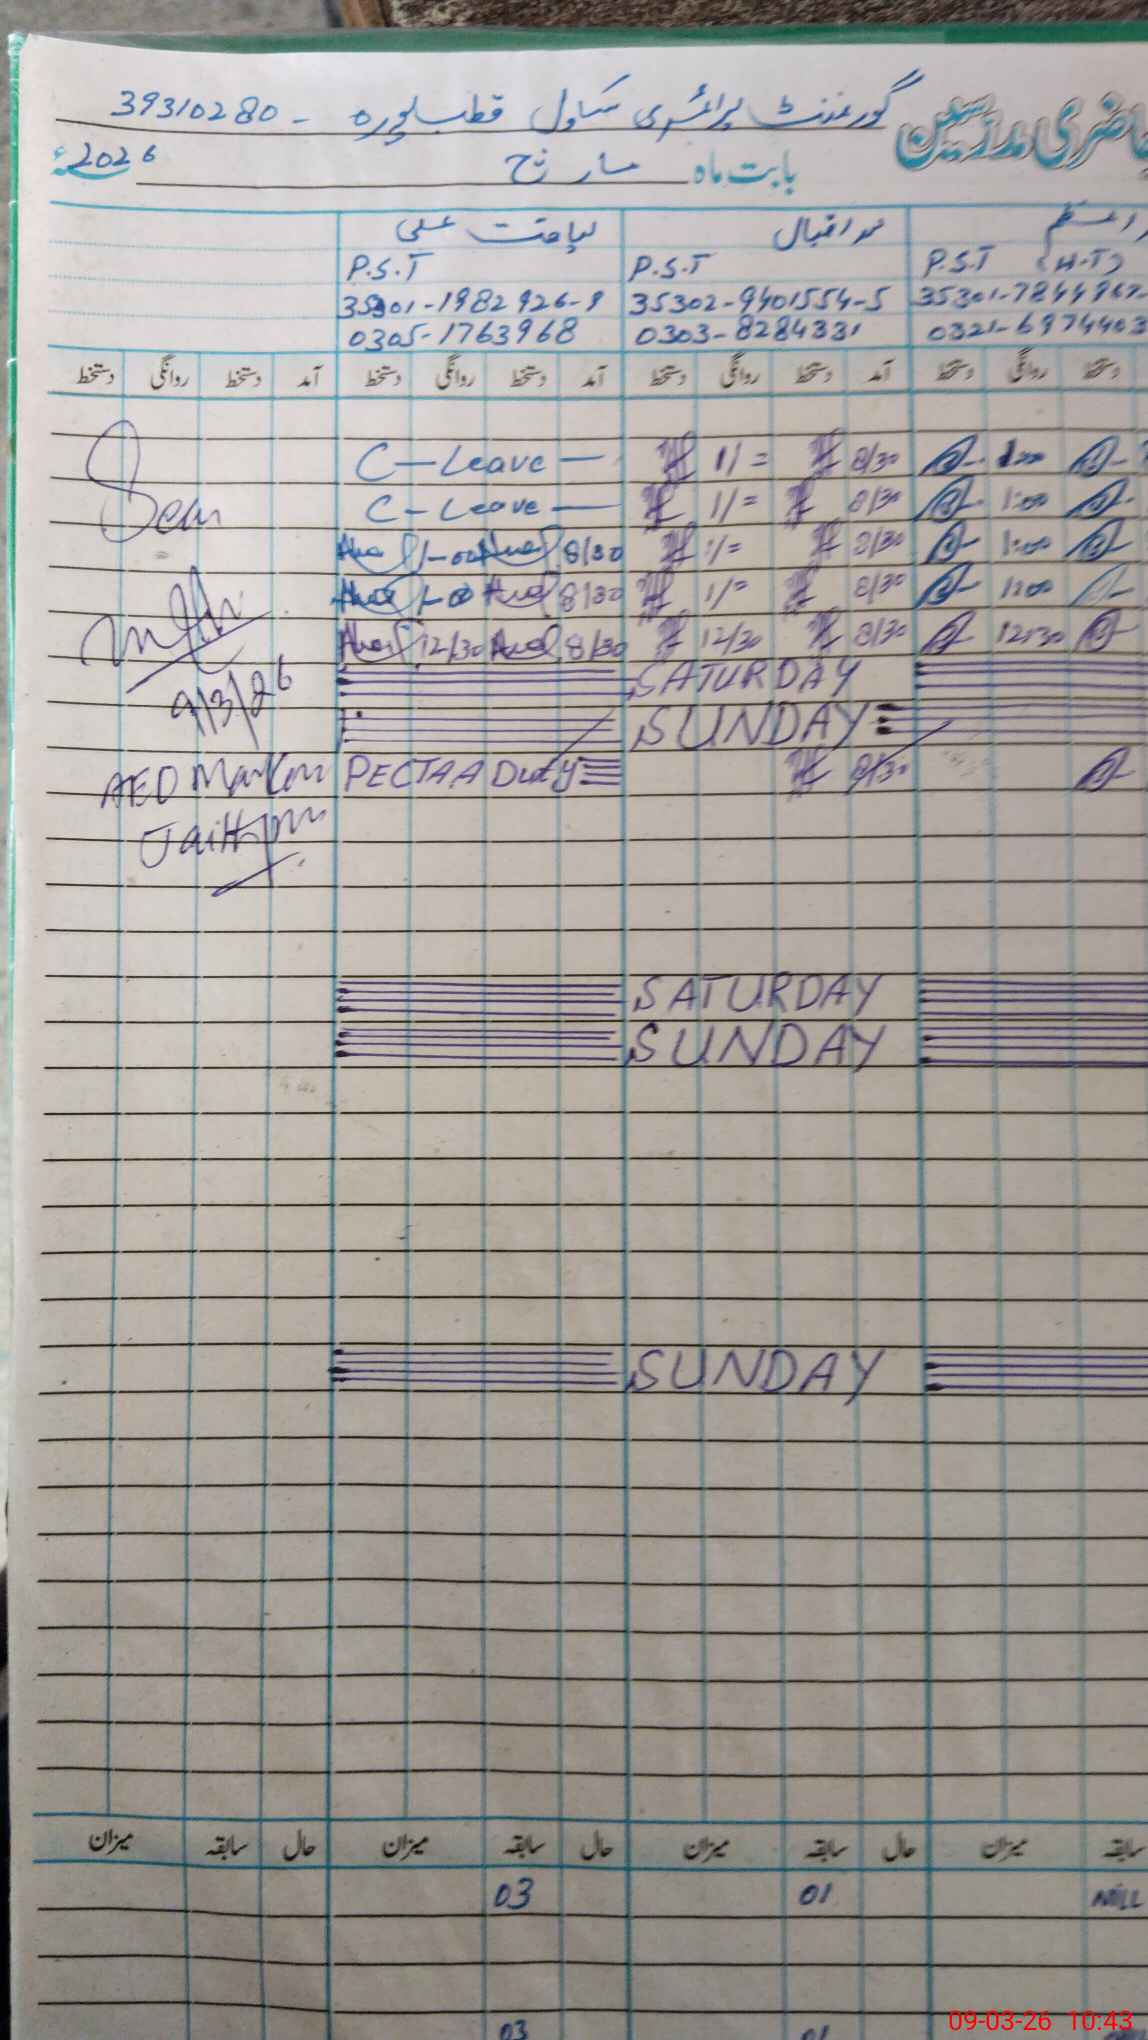 حاضری مدرسین گورنمنٹ پرائمری سکول قطب پورہ - 39310280
بابت ماہ مارچ 2026ء
اقبال لیاقت علی
P.S.T (H.T) P.S.T P.S.T
35302-9401554-5 35301-1982926-9
0321-6974403 0303-8284331 0305-1763968
دستخط روانگی دستخط آمد دستخط روانگی دستخط آمد دستخط روانگی دستخط آمد دستخط روانگی دستخط
C-Leave — 1/= 8/30 1:00
C-Leave — 1/= 8/30 1:00
1-00 8/30 1/= 8/30 1:00
1-00 8/30 1/= 8/30 1:00
12/30 8/30 12/30 8/30 12:30
SATURDAY
9/3/26
SUNDAY
AEO Markaz PECTAA Duty 8/30
Jaithpur
SATURDAY
SUNDAY
SUNDAY
میزان سابقہ حال میزان سابقہ حال میزان سابقہ حال میزان سابقہ
03 01 NILL
03 01
09-03-26 10:43